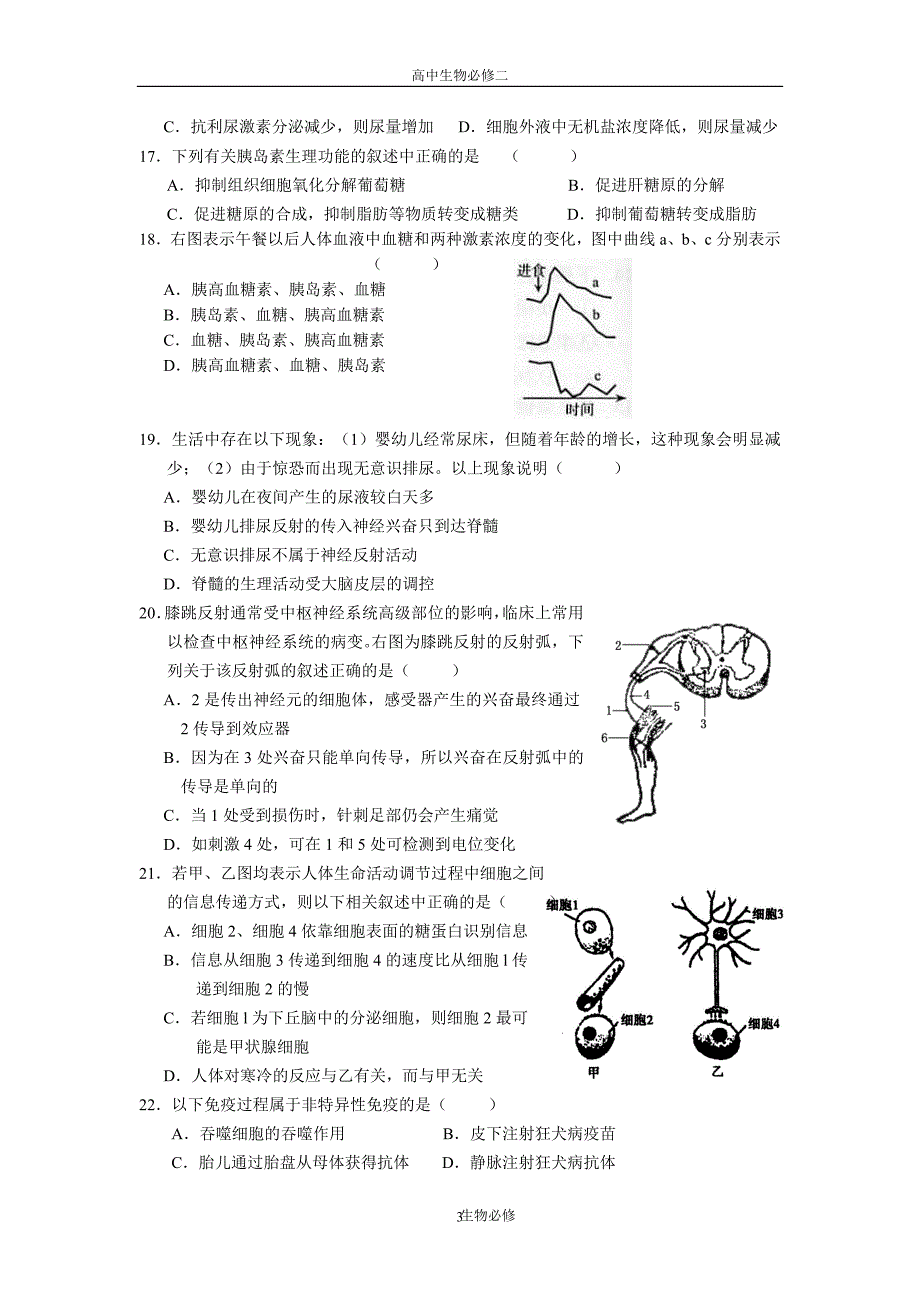 高中生物必修二
C．抗利尿激素分泌减少，则尿量增加 D．细胞外液中无机盐浓度降低，则尿量减少
17．下列有关胰岛素生理功能的叙述中正确的是 （ ）
A．抑制组织细胞氧化分解葡萄糖 B．促进肝糖原的分解
C．促进糖原的合成，抑制脂肪等物质转变成糖类 D．抑制葡萄糖转变成脂肪
18．右图表示午餐以后人体血液中血糖和两种激素浓度的变化，图中曲线 a、b、c 分别表示
（ ）
A．胰高血糖素、胰岛素、血糖
B．胰岛素、血糖、胰高血糖素
C．血糖、胰岛素、胰高血糖素
D．胰高血糖素、血糖、胰岛素
进食
a
b
c
时间
19．生活中存在以下现象：（1）婴幼儿经常尿床，但随着年龄的增长，这种现象会明显减
少；（2）由于惊恐而出现无意识排尿。以上现象说明（ ）
A．婴幼儿在夜间产生的尿液较白天多
B．婴幼儿排尿反射的传入神经兴奋只到达脊髓
C．无意识排尿不属于神经反射活动
D．脊髓的生理活动受大脑皮层的调控
20．膝跳反射通常受中枢神经系统高级部位的影响，临床上常用
以检查中枢神经系统的病变。右图为膝跳反射的反射弧，下
列关于该反射弧的叙述正确的是（ ）
A．2 是传出神经元的细胞体，感受器产生的兴奋最终通过
2 传导到效应器
B．因为在 3 处兴奋只能单向传导，所以兴奋在反射弧中的
传导是单向的
C．当 1 处受到损伤时，针刺足部仍会产生痛觉
D．如刺激 4 处，可在 1 和 5 处可检测到电位变化
2
4
1
5
3
6
21．若甲、乙图均表示人体生命活动调节过程中细胞之间
的信息传递方式，则以下相关叙述中正确的是（
A．细胞 2、细胞 4 依靠细胞表面的糖蛋白识别信息
B．信息从细胞 3 传递到细胞 4 的速度比从细胞 l 传
递到细胞 2 的慢
C．若细胞 l 为下丘脑中的分泌细胞，则细胞 2 最可
能是甲状腺细胞
D．人体对寒冷的反应与乙有关，而与甲无关
细胞1
细胞3
细胞2
细胞4
甲
乙
22．以下免疫过程属于非特异性免疫的是（ ）
A．吞噬细胞的吞噬作用 B．皮下注射狂犬病疫苗
C．胎儿通过胎盘从母体获得抗体 D．静脉注射狂犬病抗体
3生物必修